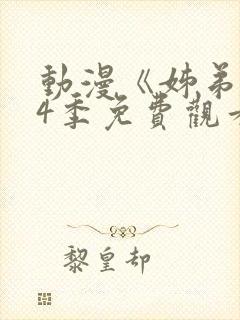 動漫《姊弟
4季免費觀看
黎皇却